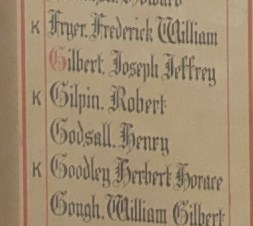 Howard
K Fryer, Frederick William
Gilbert, Joseph Jeffrey
K Gilpin, Robert
Godsall, Henry
K Goodley Herbert Horace
Gough, William Gilbert